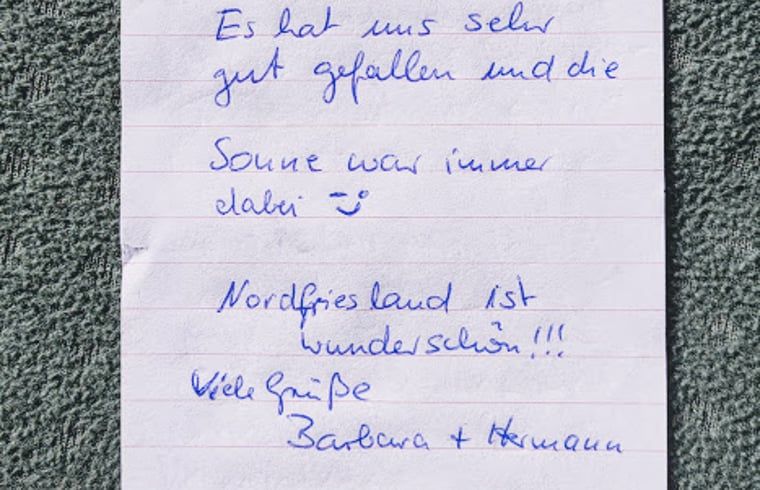 Es hat uns sehr
gut gefallen und die
Sonne war immer
dabei
Nordfriesland ist
wunderschön!!!
Viele Grüße
Barbara + Hermann